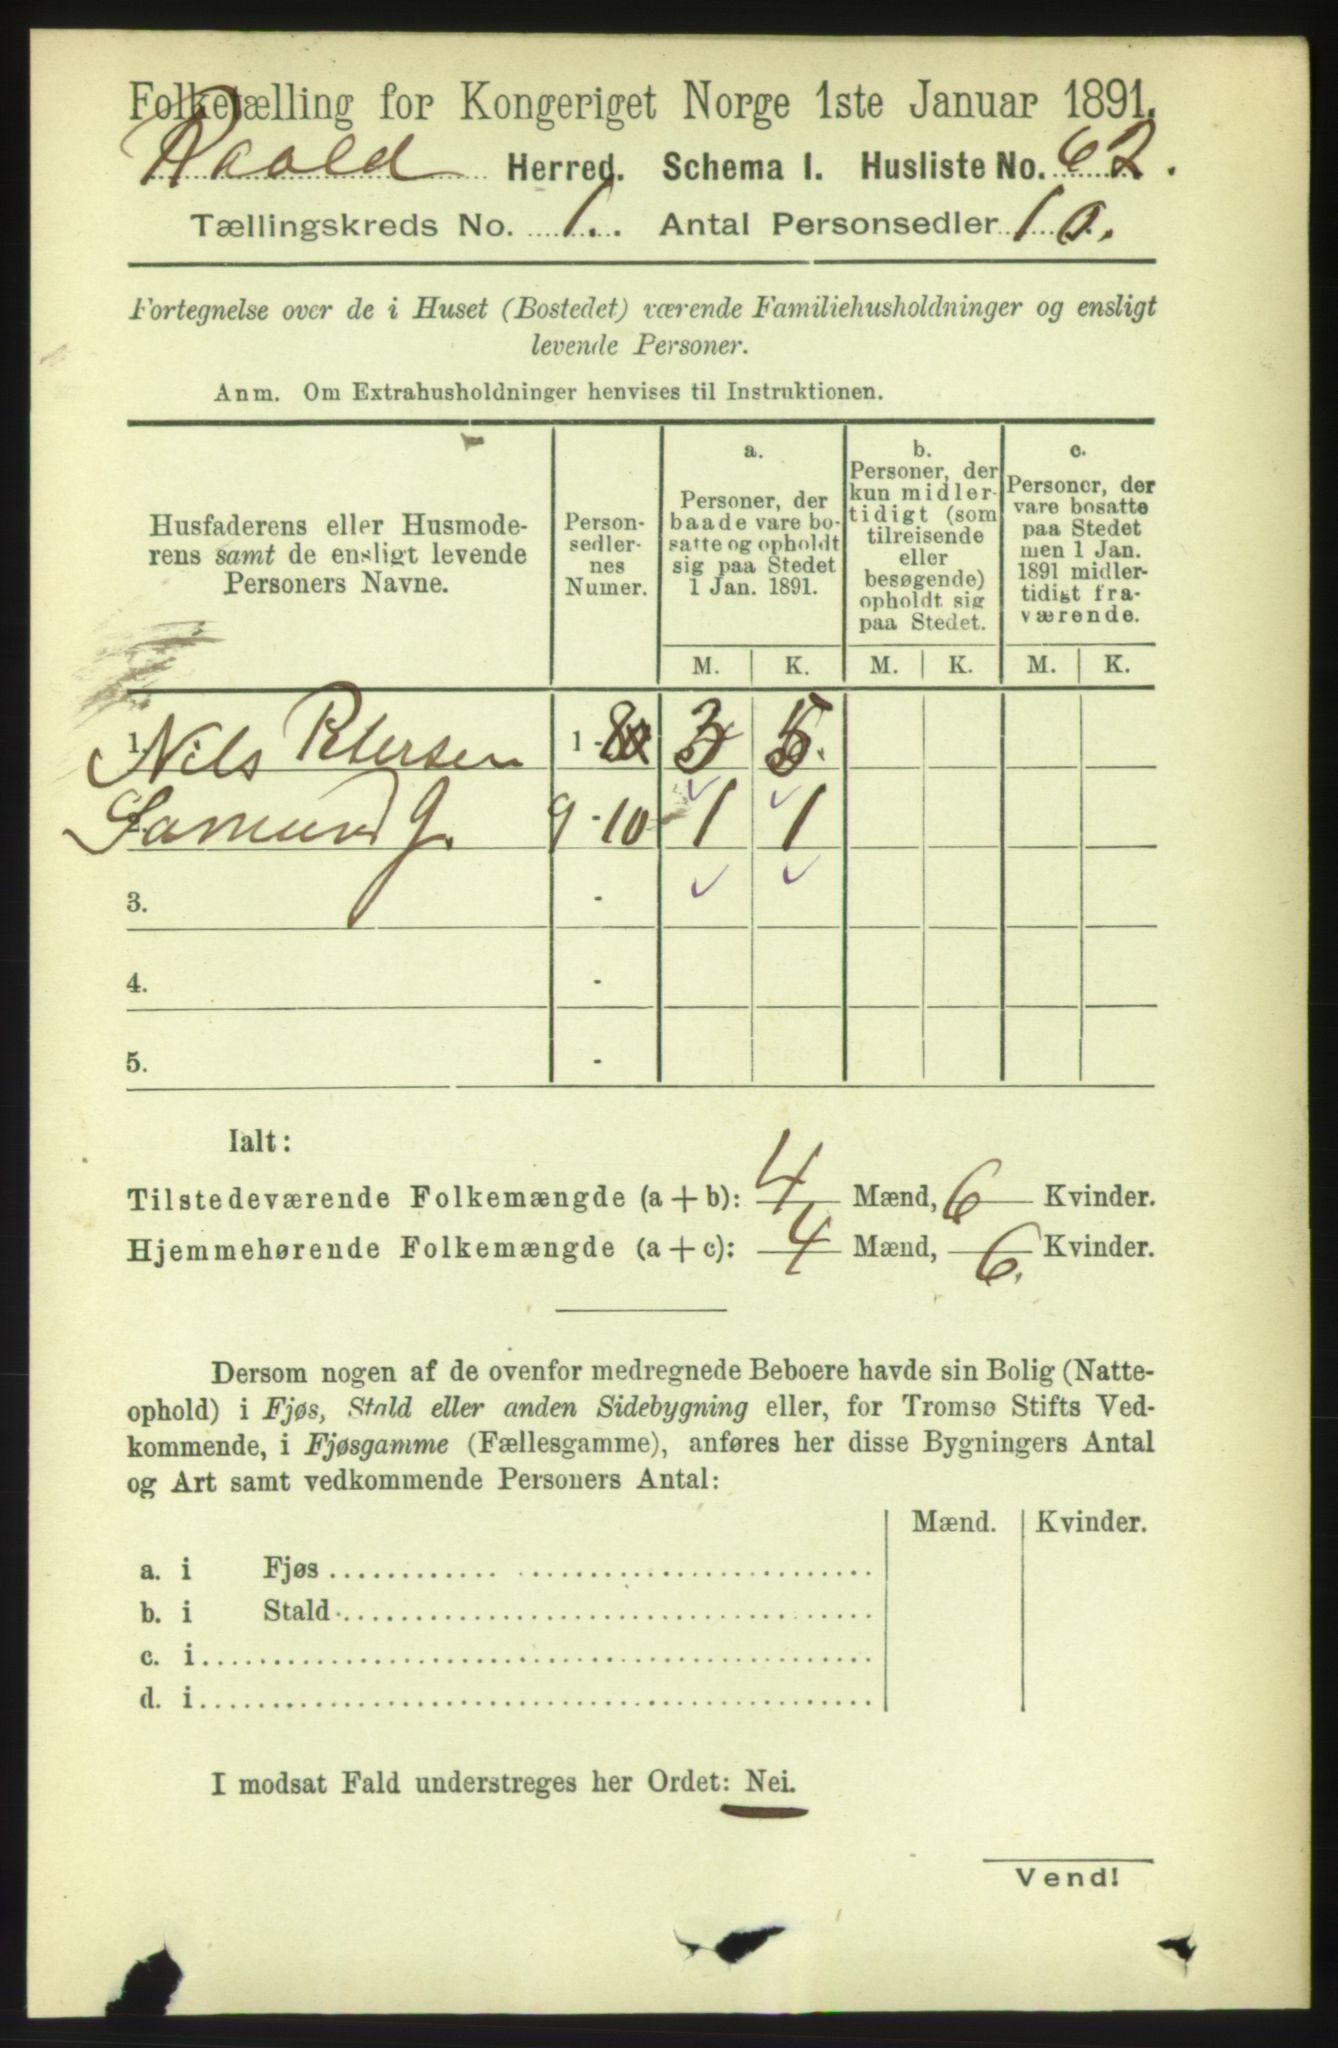 Folketælling for Kongeriget Norge 1ste Januar 1891.
Raold Herred. Schema I. Husliste No. 62.
Tællingskreds No. 1. Antal Personsedler 10.
Fortegnelse over de i Huset (Bostedet) værende Familiehusholdninger og ensligt
levende Personer.
Anm. Om Extrahusholdninger henvises til Instruktionen.
Husfaderens eller Husmode-
rens samt de ensligt levende
Personers Navne.
Person-
sedler-
nes
Numer.
a.
Personer, der
baade vare bo-
satte og opholdt
sig paa Stedet
1 Jan. 1891.
b.
Personer, der
kun midler-
tidigt (som
tilreisende
eller
besøgende)
opholdt sig
paa Stedet.
c.
Personer, der
vare bosatte
paa Stedet
men 1 Jan.
1891 midler-
tidigt fra-
værende.
M. K. M. K. M. K.
1. Nils Petersen 1 - 8 3 5.
Samund J. 9 - 10 1 1
3. -
4. -
5. -
Ialt:
Tilstedeværende Folkemængde (a + b): 4 Mænd, 6 Kvinder.
Hjemmehørende Folkemængde (a + c): 4 Mænd, 6. Kvinder.
Dersom nogen af de ovenfor medregnede Beboere havde sin Bolig (Natte-
ophold) i Fjøs, Stald eller anden Sidebygning eller, for Tromsø Stifts Ved-
kommende, i Fjøsgamme (Fællesgamme), anføres her disse Bygningers Antal
og Art samt vedkommende Personers Antal:
Mænd. Kvinder.
a. i Fjøs
b. i Stald
c. i
d. i
I modsat Fald understreges her Ordet: Nei.
Vend!